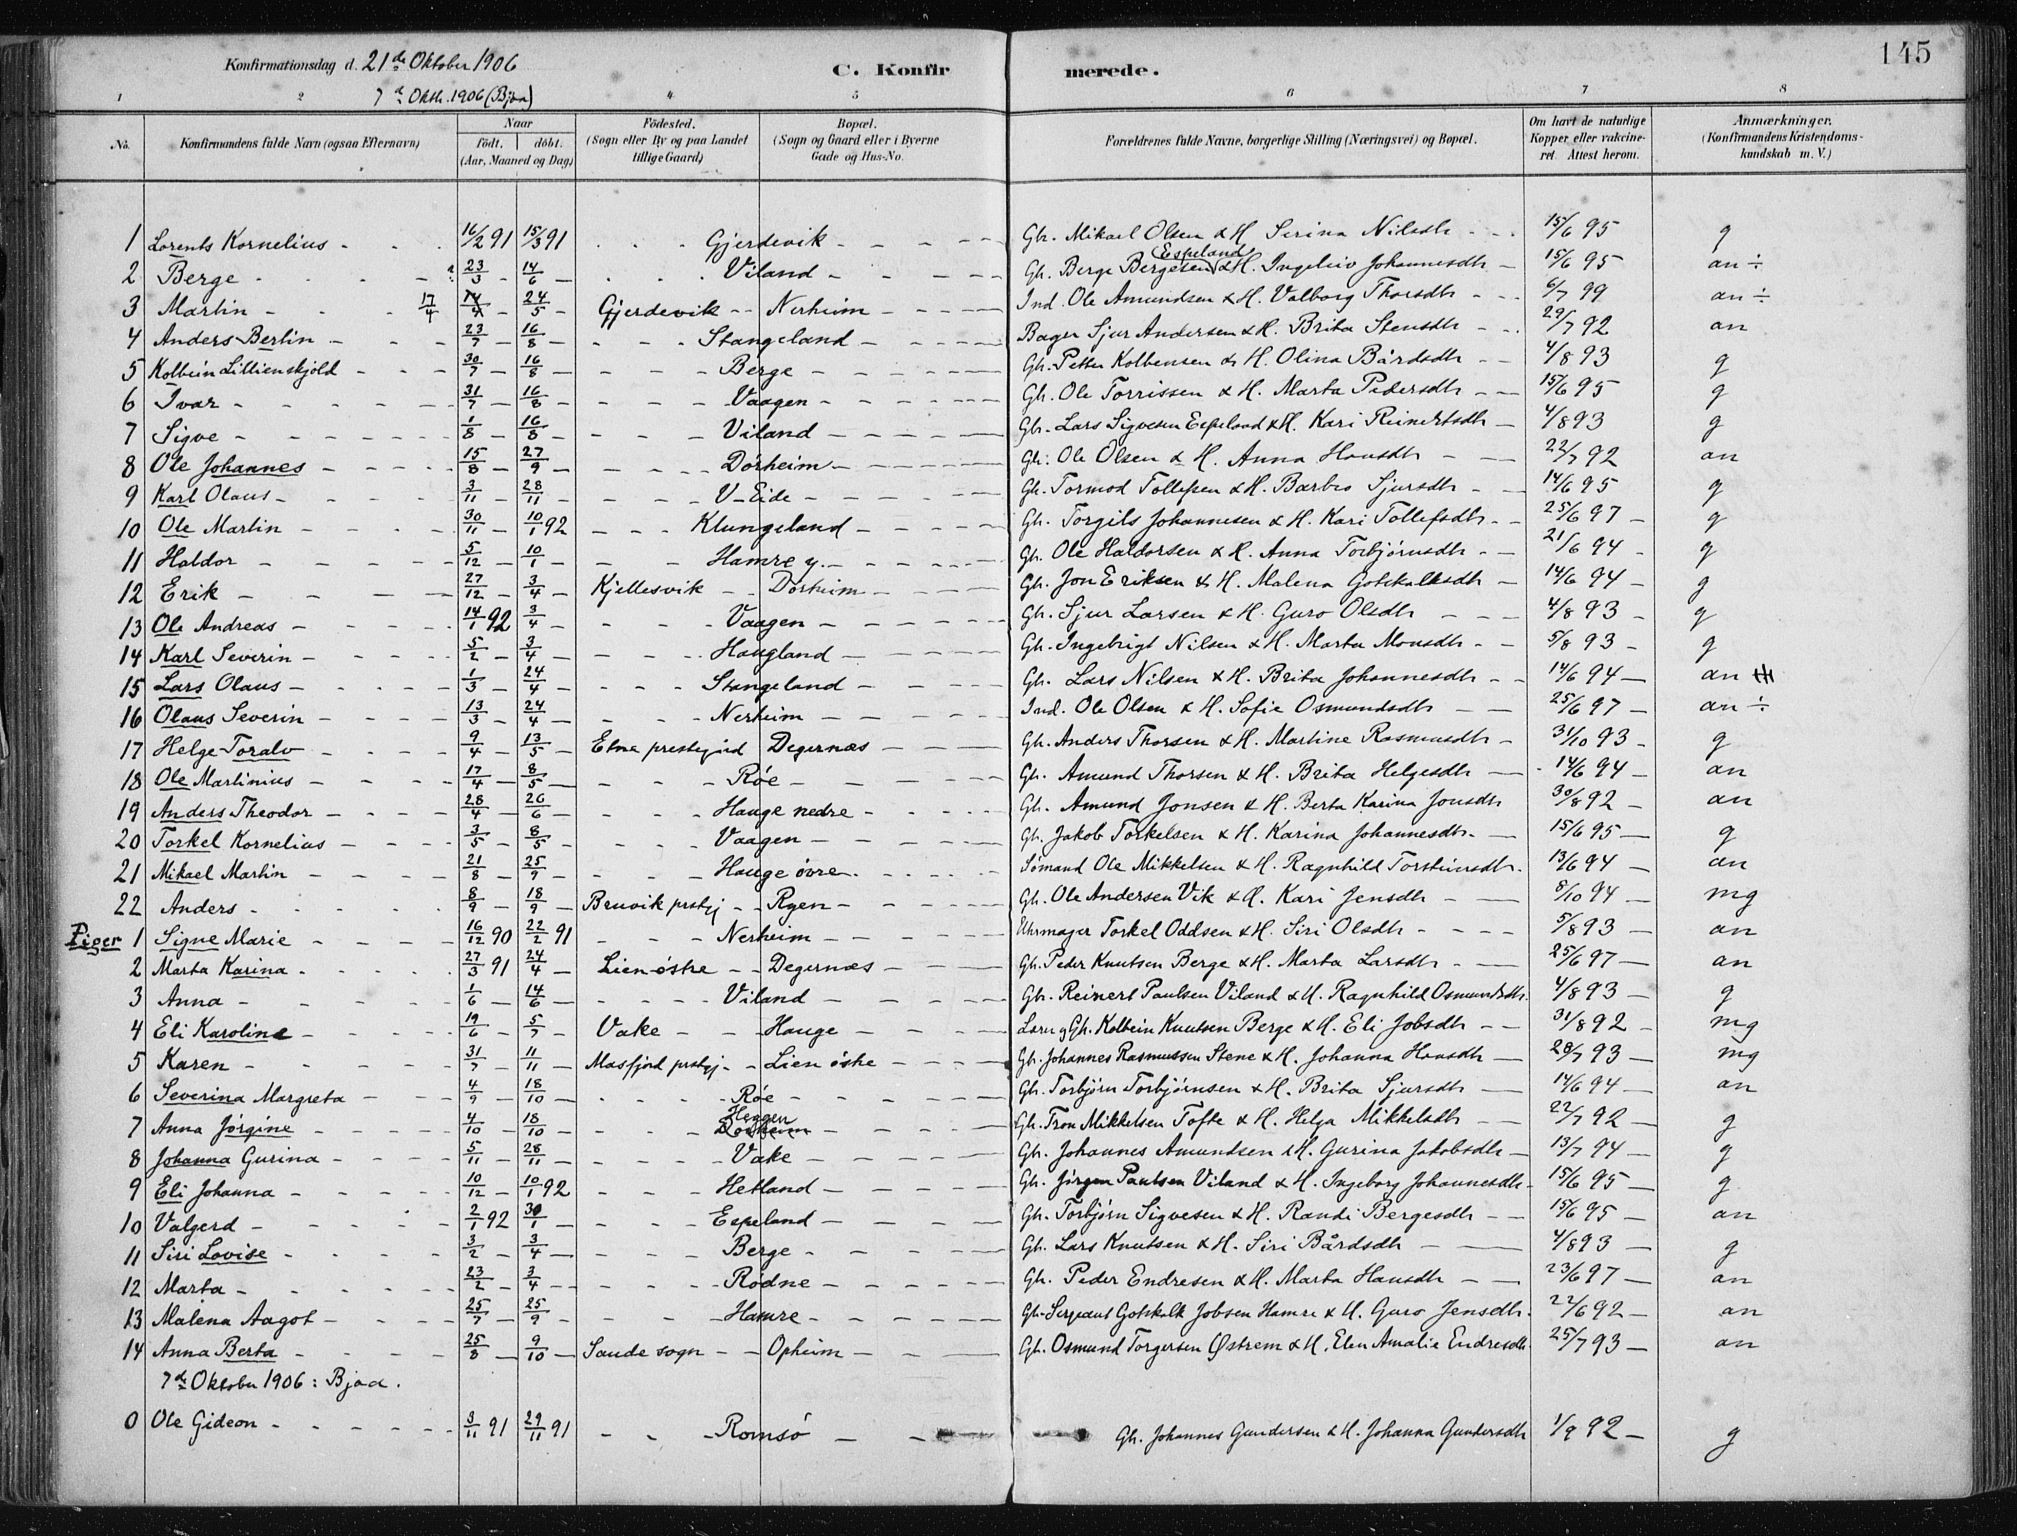 145
Konfirmationsdag d. 21de Oktober 1906
7de Oktb. 1906 (Bjoa)
C. Konfirmerede.
1 2 4 5 6 7 8
No. Konfirmandens fulde Navn (ogsaa Efternavn) Naar födt. döbt. (Aar, Maaned og Dag) Födested. (Sogn eller By og paa Landet tillige Gaard) Bopæl. (Sogn og Gaard eller i Byerne Gade og Hus-No. Forældrenes fulde Navne, borgerlige Stilling (Næringsvei) og Bopæl. Om havt de naturlige Kopper eller vakcineret. Attest herom. Anmærkninger. (Konfirmandens Kristendomskundskab m. V.)
1 Lorents Kornelius - 16/2 91 15/3 91 - Gjerdevik - Gbr. Mikael Olsen & H. Serina Nilsdtr - 15/6 95 g
2 Berge - 23/3 - 14/6 - Viland - Gb. Berge Bergesen Espeland & H. Ingeleiv Johannesdtr - 15/6 95 an ÷
3 Martin - 17/4 14/4 - 24/5 - Gjerdevik - Nerheim - Ind. Ole Amundsen & H. Valborg Thorsdtr - 6/7 99 an ÷
4 Anders Bertin - 23/7 - 16/8 - Stangeland - Bager Sjur Andersen & H. Brita Stensdtr - 29/7 92 an
5 Kolbein Lillienskjöld - 30/7 - 16/8 - Berge - Gb. Petter Kolbensen & H. Olina Bårdsdtr - 4/8 93 g
6 Ivar - 31/7 - 16/8 - Vaagen - Gb. Ole Torrissen & H. Marta Pedersdtr - 15/6 95 g
7 Sigve - 1/8 - 16/8 - Viland - Gbr. Lars Sigvesen Espeland & H. Kari Reinertsdtr - 4/8 93 g
8 Ole Johannes - 15/8 - 27/9 - Dörheim - Gb. Ole Olsen & H. Anna Hansdtr - 22/7 92 an
9 Karl Olaus - 3/11 - 28/11 - V-Eide - Gb. Tormod Tollefsen & H. Barbro Sjursdtr - 14/6 95 g
10 Ole Martin - 30/11 - 10/1 92 - Klungeland - Gb. Torgils Johannesen & H. Kari Tollefsdtr - 25/6 97 - g
11 Haldor - 5/12 - 10/1 - Hamre y. - Gb. Ole Haldorsen & H. Anna Torbjörnsdtr - 21/6 94 - g
12 Erik - 27/12 - 3/4 - Kjellesvik - Dörheim - Gb. Jon Eriksen & H. Malena Gotskalksdtr - 14/6 94 - g
13 Ole Andreas - 14/1 92 3/4 - Vaagen - Gb. Sjur Larsen & H. Guro Olsdtr - 4/8 93 - g
14 Karl Severin - 5/2 - 3/4 - Haugland - Gb. Ingebrigt Nilsen & H. Marta Monsdtr - 5/8 93 - g
15 Lars Olaus - 1/3 - 24/4 - Stangeland - Gb. Lars Nilsen & H. Brita Johannesdtr - 14/6 94 - an
16 Olaus Severin - 13/3 - 24/4 - Nerheim - Ind. Ole Olsen & H. Sofie Osmundsdtr - 25/6 97 - an ÷
17 Helge Toralv - 9/4 - 13/5 - Etne prestegård Degernæs - Gb. Anders Thorsen & H. Martine Rasmusdtr - 31/10 93 - g
18 Ole Martinius - 17/4 - 8/5 - Röe - Gb. Amund Thorsen & H. Brita Helgesdtr - 14/6 94 - an
19 Anders Theodor - 28/4 - 26/6 - Hauge nedre - Gb. Amund Jonsen & H. Berta Karina Jonsdtr 30/8 92 - an
20 Torkel Kornelius - 3/5 - 8/5 - Vaagen - Gb. Jakob Torkelsen & H. Karina Johannesdtr - 15/6 95 - g
21 Mikael Martin - 21/8 - 25/9 - Hauge övre - Sömand Ole Mikkelsen & H. Ragnhild Torsteinsdtr. 13/6 94 - an
22 Anders - 8/9 - 18/9 - Bruvik prstgj - Rygen - Gb. Ole Andersen Vik & H. Kari Jensdtr - 8/10 94 - mg
Piger 1 Signe Marie - 16/12 90 22/2 91 - Nerheim - Uhrmager Torkel Oddsen & H. Siri Olsdtr - 5/8 93 - an
2 Marta Karina - 27/3 91 24/4 - Lien östre - Degernæs - Gb. Peder Knutsen Berge & H. Marta Larsdtr - 25/6 97 - an
3 Anna - 1/6 - 14/6 - Viland - Gb. Reinert Paulsen Viland & H. Ragnhild Osmundsdtr. 4/8 93 - g
4 Eli Karoline - 19/6 - 5/7 - Vake - Hauge - Lærer og Gb. Kolbein Knutsen Berge & H. Eli Jobsdtr - 31/8 92 - mg
5 Karen - 31/7 - 11/11 - Masfjord prstgj - Lien östre - Gb. Johannes Rasmussen Stene & H. Johanna Hansdtr - 28/7 93 - mg
6 Severina Margreta - 4/9 - 18/10 - Röe - Gb. Torbjörn Torbjörnsen & H. Brita Sjursdtr - 14/6 94 - an
7 Anna Jörgine - 4/10 - 18/10 - Heggen Dörheim - Gb. Tron Mikkelsen Tofte & H. Helga Mikkelsdtr - 22/7 92 - g
8 Johanna Gurina - 5/11 - 28/11 - Vake - Gb. Johannes Amundsen & H. Gurina Jakobsdtr - 13/7 94 - g
9 Eli Johanna - 10/12 - 10/1 92 - Hetland - Gb. Jörgen Paulsen Viland & H. Ingeborg Johannesdtr - 15/6 95 - g
10 Valgerd - 2/1 92 30/1 - Espeland - Gb. Torbjörn Sigvesen & H. Randi Bergesdtr - 15/6 95 - an
11 Siri Lovise - 3/2 - 3/4 - Berge - Gb. Lars Knutsen & H. Siri Bårdsdtr - 4/8 93 - g
12 Marta - 23/2 - 3/4 - Rödne - Gb. Peder Endresen & H. Marta Hansdtr - 23/6 97 - an
13 Malena Aagot - 25/7 - 25/9 - Hamre - Gb. Sergeant Gotskalk Jobsen Hamre & H. Guro Jensdtr. 22/6 92 - an
14 Anna Berta - 25/8 - 9/10 - Saude sogn - Opheim - Gb. Osmund Torgersen Østrem & H. Elen Amalie Endresdtr. 25/7 93 - an
7de Oktober 1906: Bjoa.
0 Ole Gideon - 3/11 91 29/11 91 - Romsö - Gb. Johannes Gundersen & H. Johanna Gundersdtr 1/9 92 - g